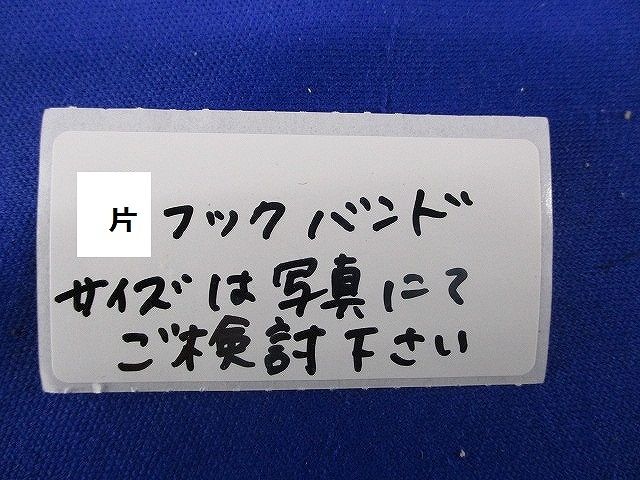 片フックバンド
サイズは写真にて
ご検討下さい